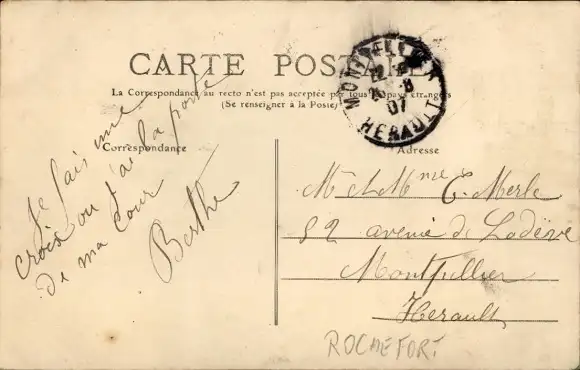 CARTE POSTALE
La Correspondance au recto n'est pas acceptée par tous les pays étrangers
(Se renseigner à la Poste)
MONTPELLIER
8
07
HERAULT
Correspondance
Adresse
Je fais une
croix ou j'ai la porte
de ma cour
Berthe
M et Mme E. Merle
82 avenue de Lodève
Montpellier
Herault
ROCHEFORT